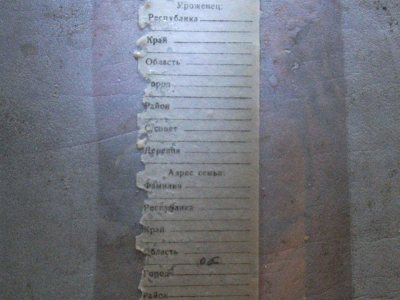 Уроженец:
Республика
Край
Область
Город
Район
С/совет
Деревня
Адрес семьи:
Фамилия
Республика
Край
Область
Город
Район